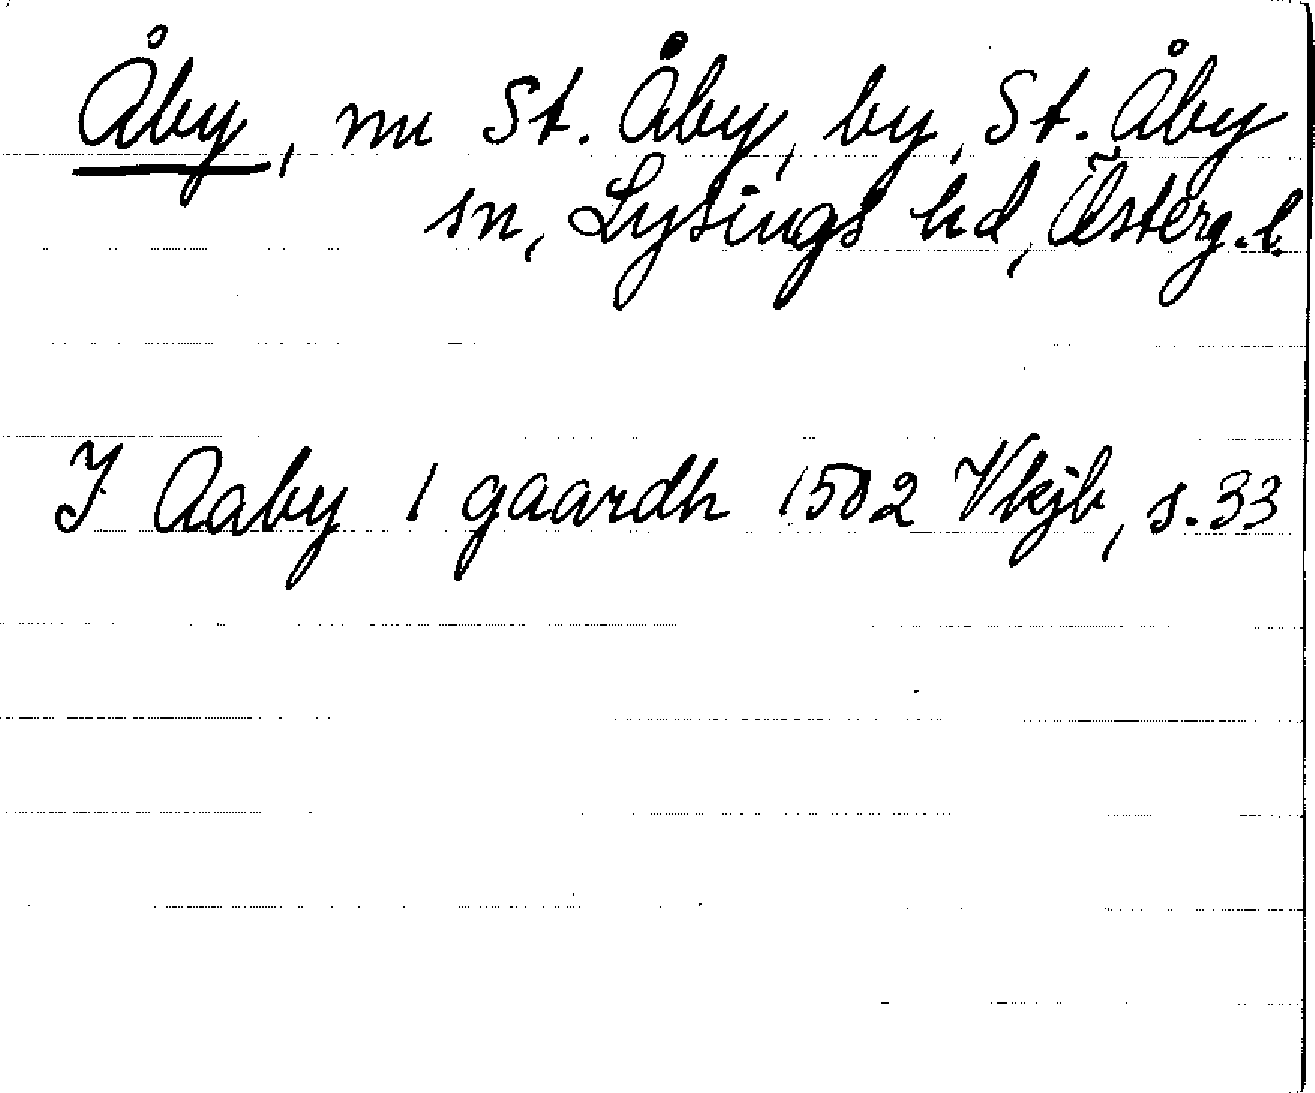 Åby, nu St. Åby, by, St. Åby
sn, Lysings hd, Österg. l.
I Aaby 1 gaardh 1502 Vkjb, s. 33